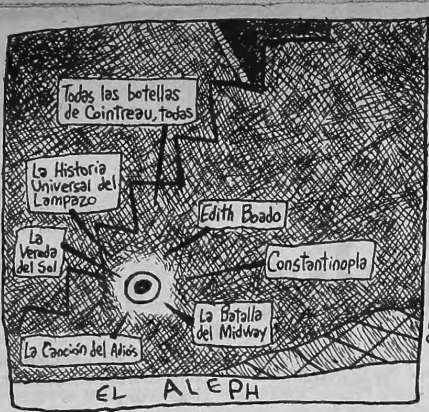 Todas las botellas
de Cointreau, todas
La Historia
Universal del
Lampazo
Edith Boado
La
Vereda
del Sol
Constantinopla
La Batalla
del Midway
La Canción del Adiós
EL ALEPH